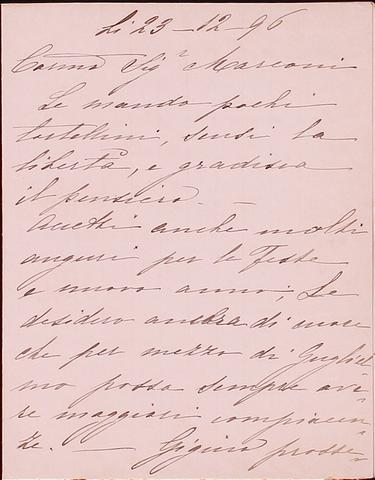 Li 23-12-96
Carmo Sigr Marconi
Le mando pochi
tortellini, scusi la
libertà, e gradisca
il pensiero. —
Accetti anche molti
auguri per le Feste
e nuovo anno; Le
desidero ancora di cuore
che per mezzo di Gugliel=
mo possa sempre ave=
re maggiori compiacen=
ze. — prosse=